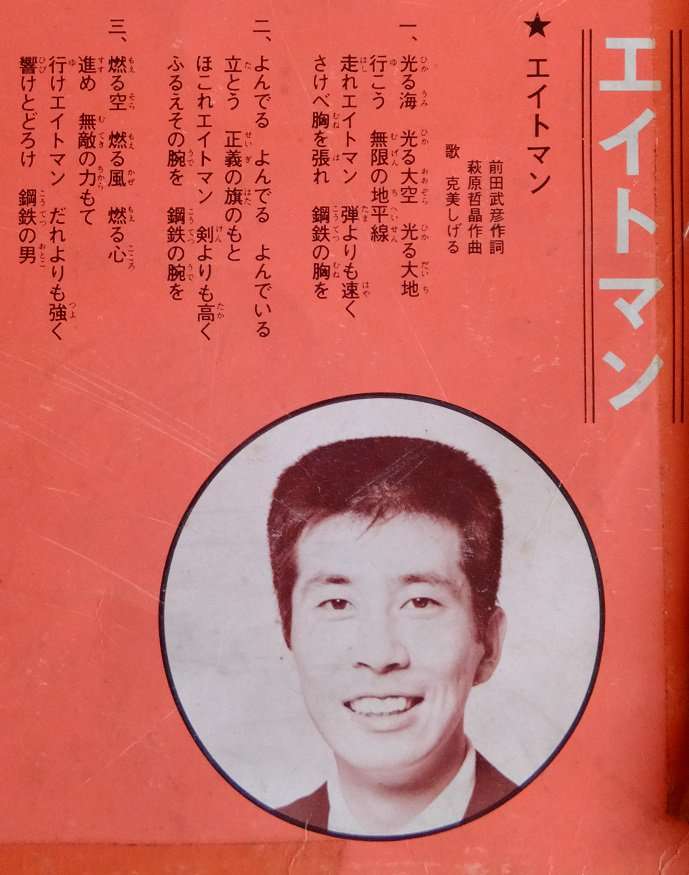 エイトマン
★エイトマン
前田武彦作詞
萩原哲晶作曲
歌 克美しげる
一、光る海 光る大空 光る大地
行こう 無限の地平線
走れエイトマン 弾よりも速く
さけべ胸を張れ 鋼鉄の胸を
二、よんでる よんでる よんでいる
立とう 正義の旗のもと
ほこれエイトマン 剣よりも高く
ふるえその腕を 鋼鉄の腕を
三、燃る空 燃る風 燃る心
進め 無敵の力もて
行けエイトマン だれよりも強く
響けとどろけ 鋼鉄の男